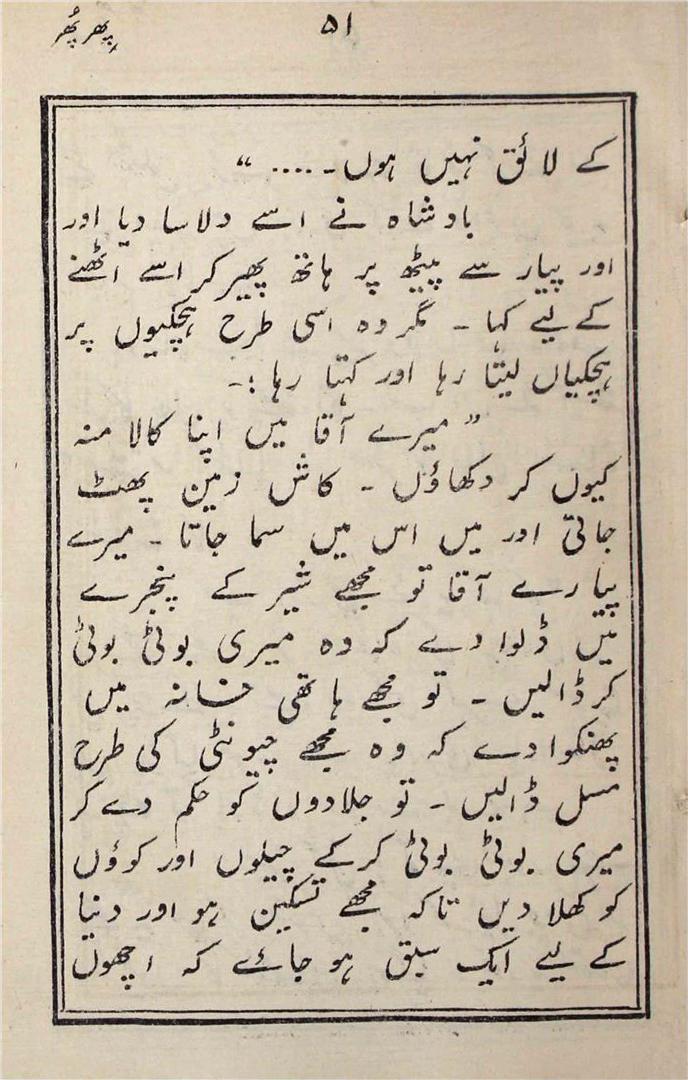 ۵۱
پھر پُھر
کے لائق نہیں ہوں۔....“
بادشاہ نے اسے دلاسا دیا اور
اور پیار سے پیٹھ پر ہاتھ پھیر کر اسے اٹھنے
کے لیے کہا ۔ مگر وہ اسی طرح ہچکیوں پر
ہچکیاں لیتا رہا اور کہتا رہا :۔
”میرے آقا میں اپنا کالا منہ
کیوں کر دکھاؤں ۔ کاش زمین پھٹ
جاتی اور میں اس میں سما جاتا ۔ میرے
پیارے آقا تو مجھے شیر کے پنجرے
میں ڈلوا دے کہ وہ میری بوٹی بوٹی
کر ڈالیں ۔ تو مجھے ہاتھی خانہ میں
پھنکوا دے کہ وہ مجھے چیونٹی کی طرح
مسل ڈالیں ۔ تو جلادوں کو حکم دے کر
میری بوٹی بوٹی کرکے چیلوں اور کوؤں
کو کھلا دیں تاکہ مجھے تسکین ہو اور دنیا
کے لیے ایک سبق ہو جائے کہ اچھوں